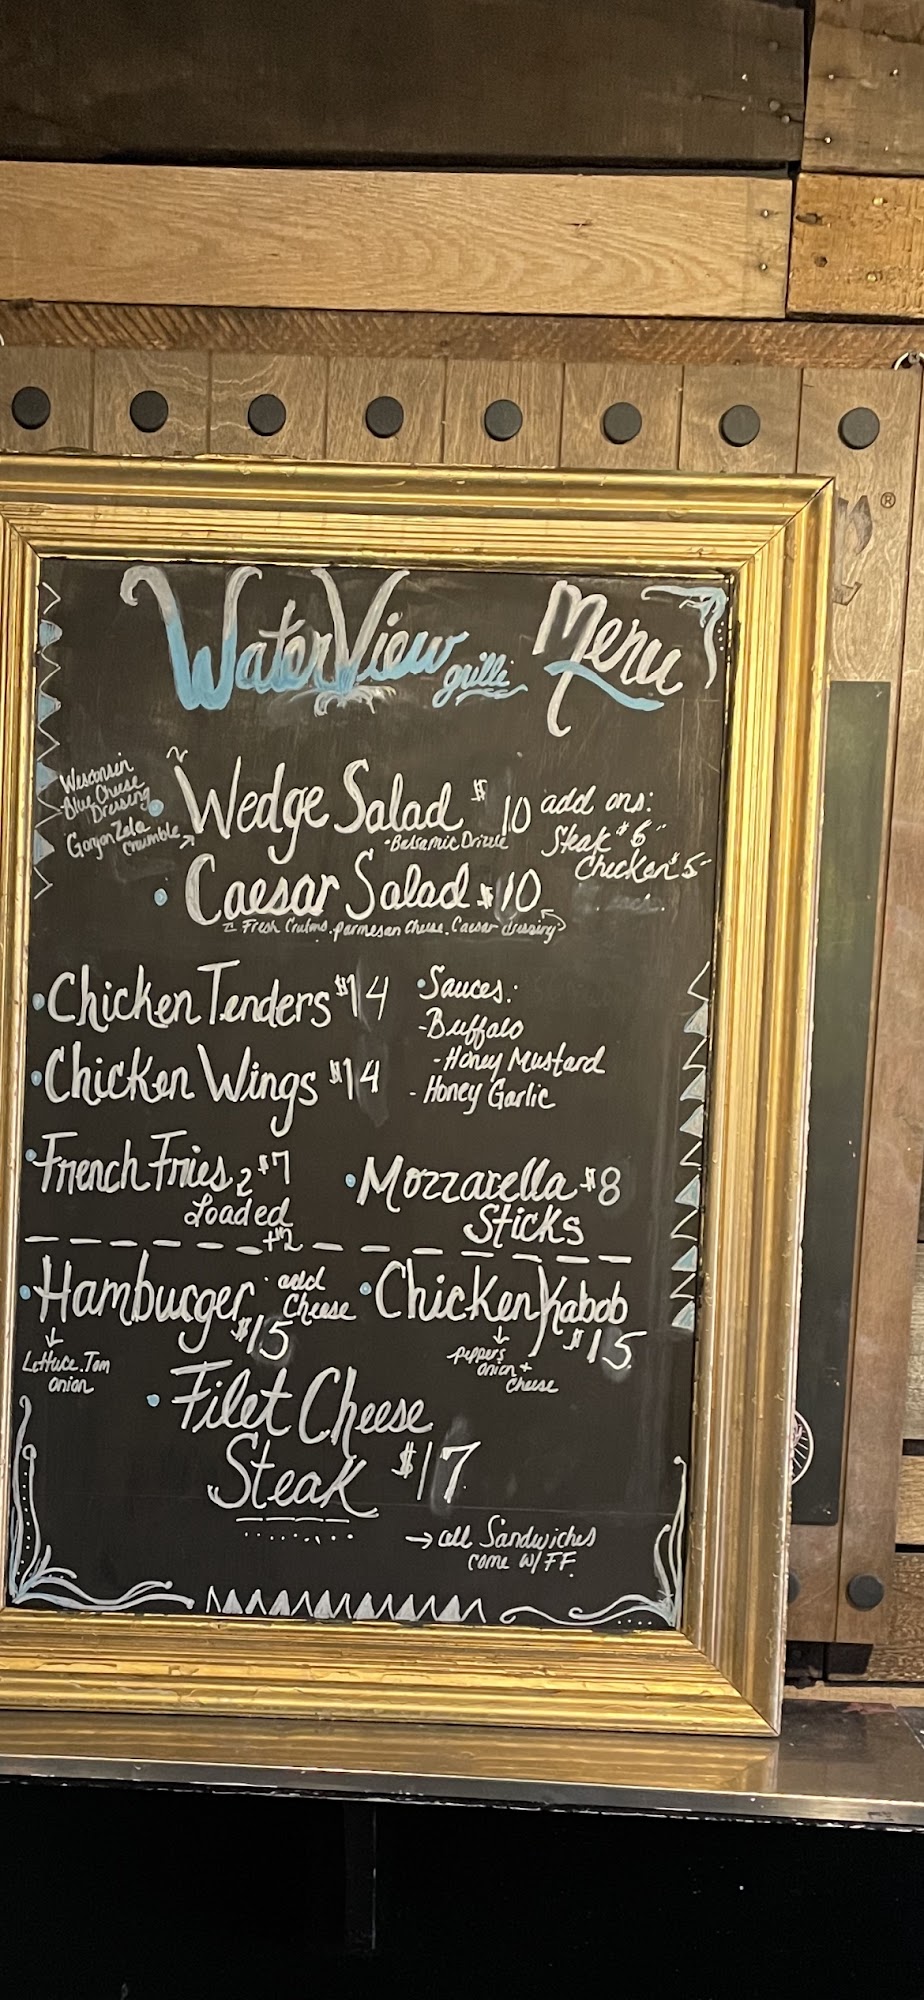 WaterView grille Menu
Wesconsin
Blue Cheese
Dressing
GorgonZola
Crumble
Wedge Salad $10
Balsamic Drizzle
add ons:
Steak $6
Chicken $5
Caesar Salad $10
Fresh Parmesan Cheese. Caesar dressing
Chicken Tenders $14
Chicken Wings $14
Sauces:
-Buffalo
-Honey Mustard
-Honey Garlic
French Fries $7
Loaded
+$2
Mozzarella $8
Sticks
Hamburger
$15
add
Cheese
Lettuce. Tom
onion
Chicken Kabob
$15
peppers
onion +
cheese
Filet Cheese
Steak $17
all Sandwiches
come w/ FF.
®